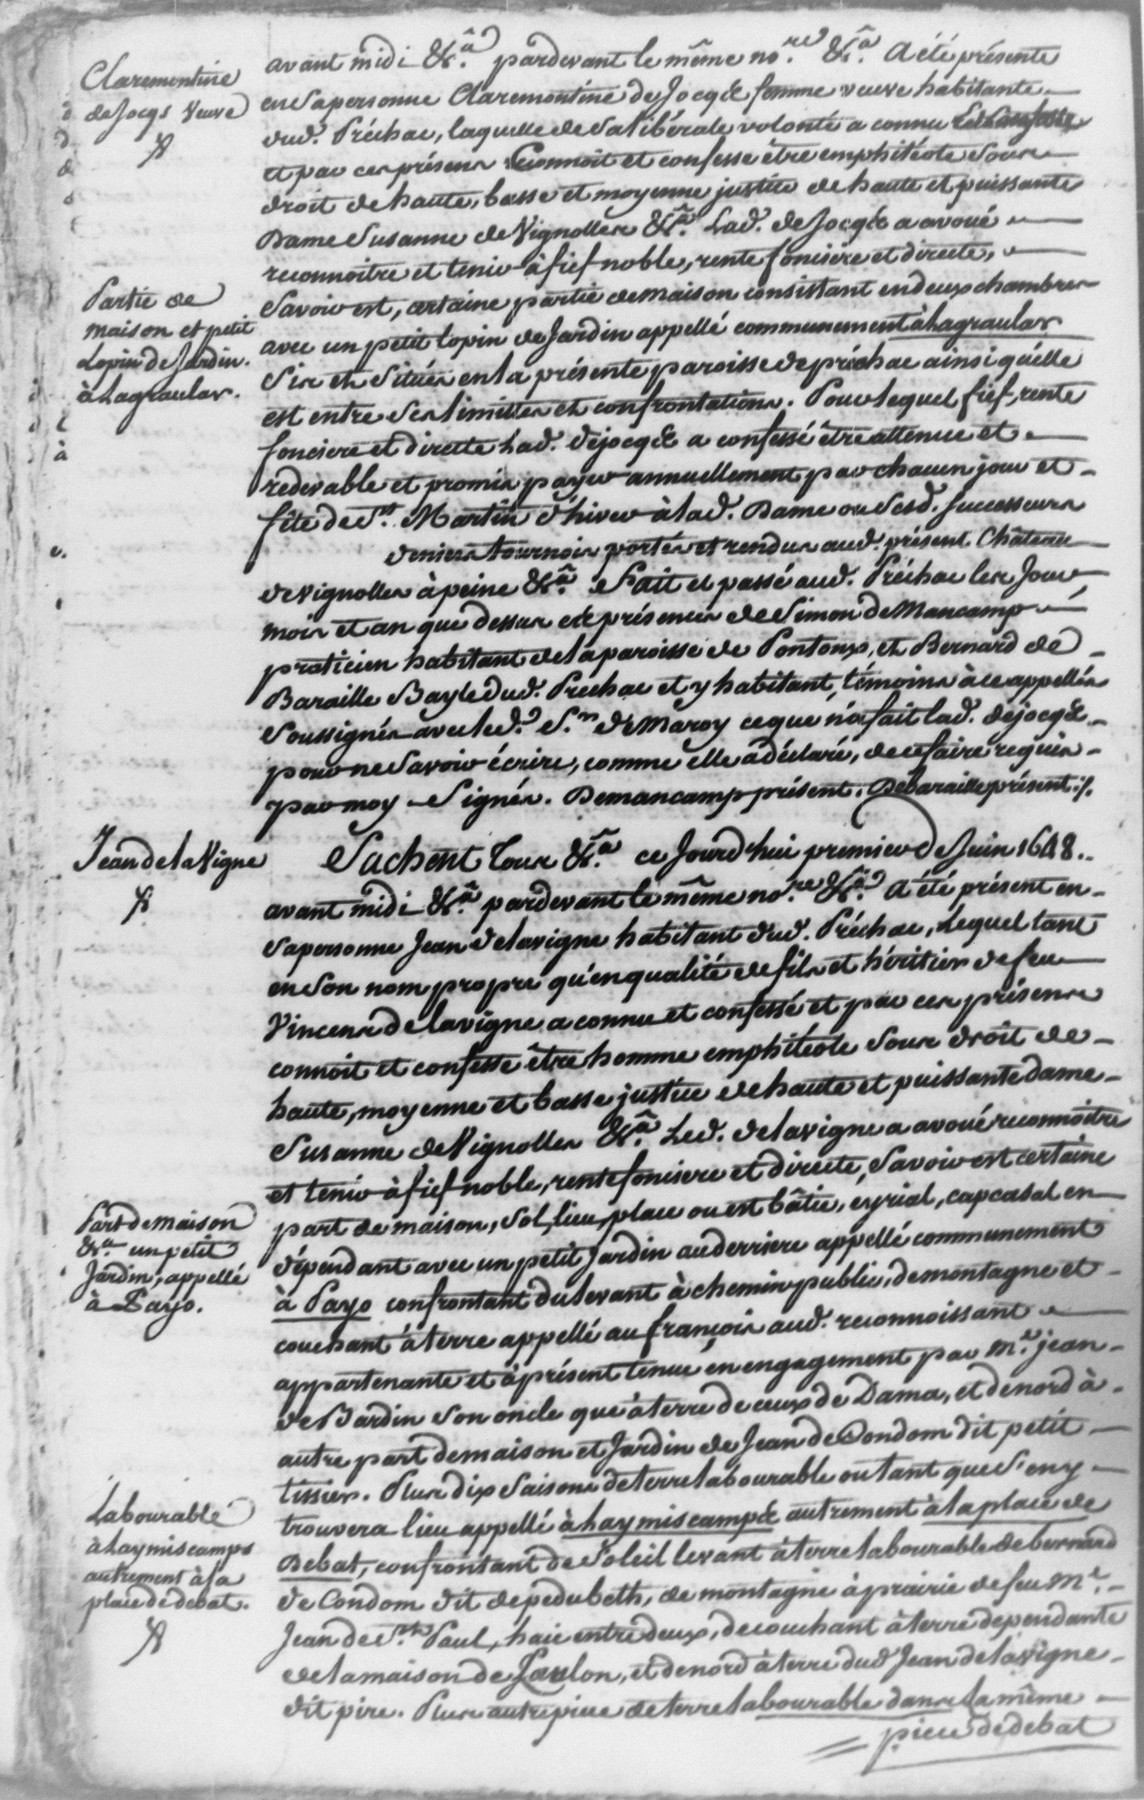 Claremontine
de Jocqs Veuve
avant midi &c.ª pardevant le même no.re &c.ª A été présente
en sa personne Claremontine de Jocqs femme veuve habitante
dud. Préchac, laquelle de sa libérale volonté a connu
et par ces présens connoit et confesse être emphitéote sous
droit de haute, basse et moyenne justice de haute et puissante
Dame Susanne de Vignolles &c.ª Lad. de Jocqs a avoué
reconnoitre et tenir à fief noble, rente fonciere et directe,
Partie de
maison et petit
Lopin de Jardin.
à Lagraular.
Savoir est, certaine partie de maison consistant en deux chambres
avec un petit lopin de Jardin appellé communement à Lagraular
Sis et Situés en la présente paroisse de préchac ainsi quélle
est entre ses limittes et confrontations. Pour lequel fief, rente
fonciere et directe lad. dejocqs a confessé être attenue et
redevable et promis payer annuellement par chacun jour et
fête de St. Martin d'hiver à lad. Dame ou Sesd. Successeurs
deniers tournois portés et rendus aud. présent Château
de Vignolles à peine &c.ª Fait et passé aud. Préchac les Jour
mois et an que dessus es présences de Simon de Mancamp
praticien habitant de la paroisse de Pontonx, et Bernard de
Baraille Bayle dud. Prechac et y habitant, témoins à ce appellés
Soussignés avec led. S.r de Maroy ce que n'a fait lad. dejocqs
pour ne Savoir écrire, comme elle a déclaré, de ce faire requis
par moy Signés. Demancamp présent. Debaraille présent ./.
Jean de la Vigne
Sachent tous &c.ª ce Jourd'hui premier de Juin 1648..
avant midi &c.ª pardevant le même no.re &c.ª A été présent en
Sa personne Jean de lavigne habitant dud. Préchac, Lequel tant
en Son nom propre qu'en qualité de fils et héritier de feu
Vincens de lavigne a connu et confessé et par ces présens
connoit et confesse être homme emphitéote Sous droit de
haute, moyenne et basse justice de haute et puissante dame
Susanne de Vignolles &c.ª Led. de lavigne a avoué reconnoitre
et tenir à fief noble, rente fonciere et directe, Savoir est certaine
Part de maison
&c.ª un petit
Jardin, appellé
à Payo.
part de maison, Sol, lieu, place ou est bâtie, eyrial, capcasal en
dépendant avec un petit Jardin au derriere appellé communement
à Payo confrontant du levant à chemin public, de montagne et
couchant à terre appellé au françois aud. reconnoissant
appartenante et à présent tenue en engagement par M.e jean
de Bardin Son oncle que à terre de ceux de Dama, et de nord à
autre part de maison et Jardin de Jean de Condom dit petit
tissier. Plus dix Saisons de terre labourable ou tant que S'en y
Labourable
à haymiscamps
autrement à la
place de debat.
trouvera lieu appellé à haymiscamps autrement à la place de
Debat, confrontant de Soleil levant à terre labourable de bernard
de Condom dit de pedubeth, de montagne à prairie de feu M.e
Jean de St. Paul, haie entre deux, de couchant à terre dependante
de la maison de Paulon, et de nord à terre dud Jean de lavigne
dit pire. Plus autre piece de terre labourable dans la même
piece de debat